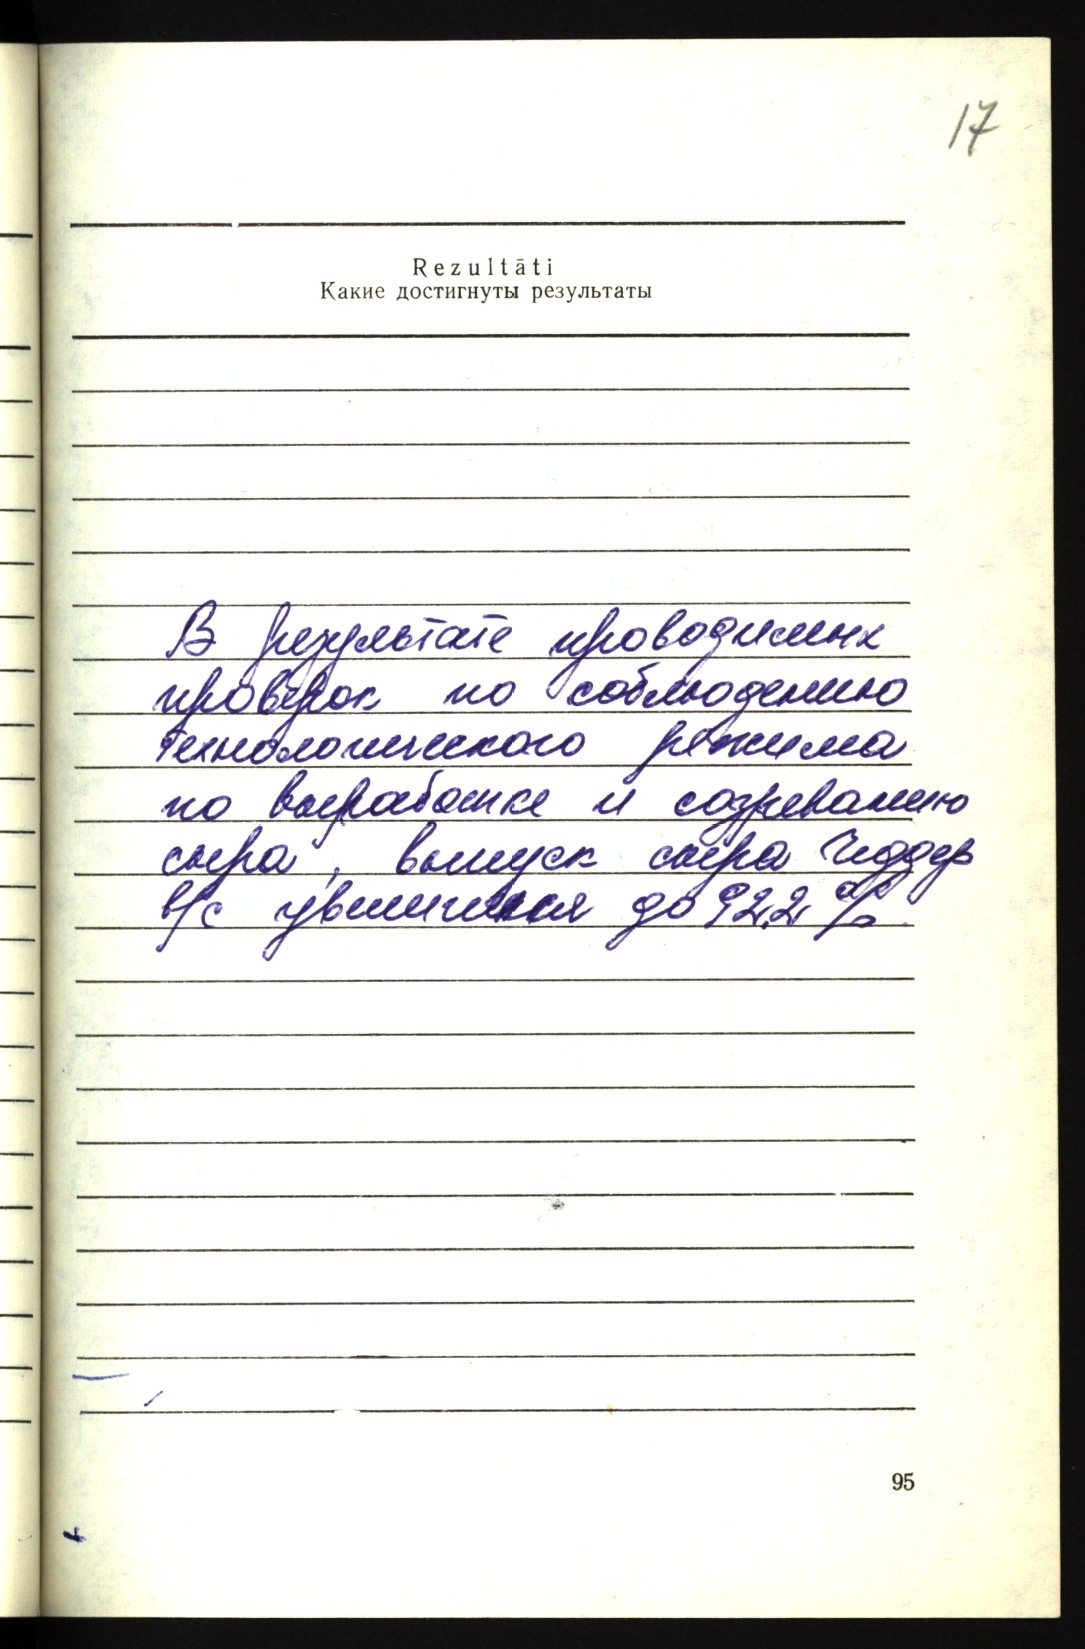 17
Rezultāti
Какие достигнуты результаты
В результате проводимых
проверок по соблюдению
технологического режима
по выработке и созреванию
сыра, выпуск сыра Чеддер
в/с увеличился до 92,2 %.
95